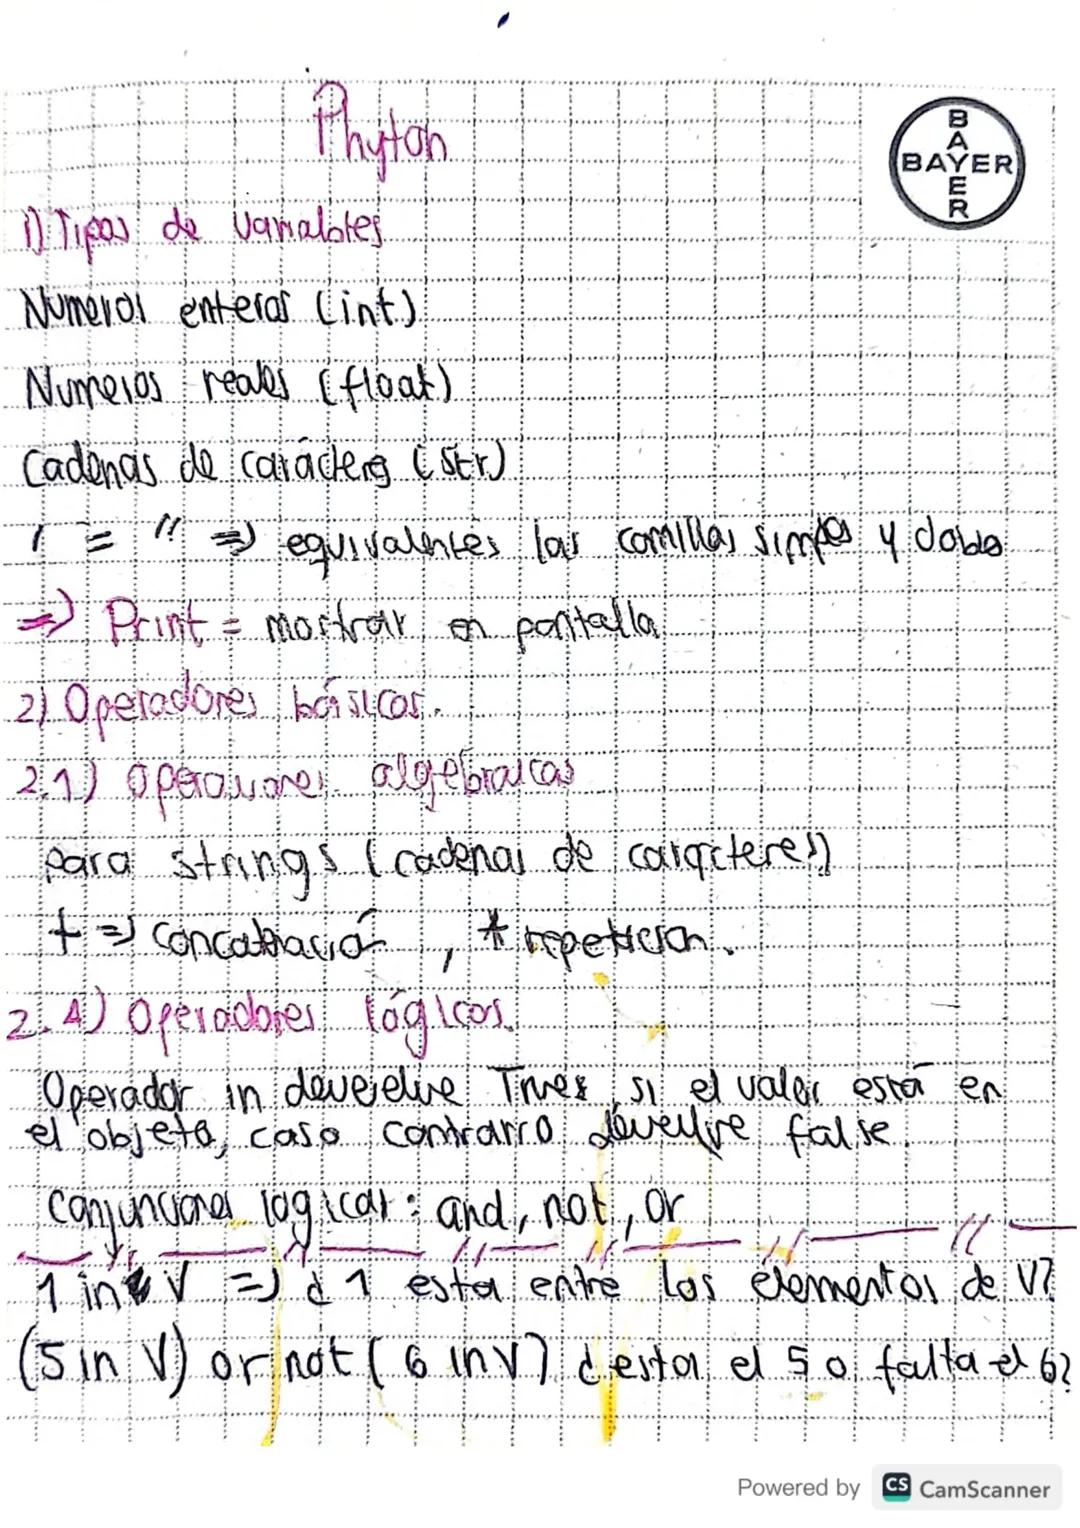 Phyton
BAYER
BAYER
1) Tipos de variables
Numeros enteros (int)
Numeros reales (float)
Cadenas de carácteres (str)
' = " => equivalentes las comillas simples y doble
=> Print = mostrar en pantalla
2) Operadores básicos.
2.1) Operaciones algebraicas
para strings (cadenas de caracteres)
+ => concatenación , * repetición.
2.4) Operadores lógicos.
Operador in devuelve True si el valor está en
el objeto, caso contrario devuelve false.
conjunciones logicas: and, not, or
1 in V => ¿ 1 esta entre los elementos de V?
(5 in V) or not ( 6 in V) ¿esta el 5 o falta el 6?
Powered by CS CamScanner